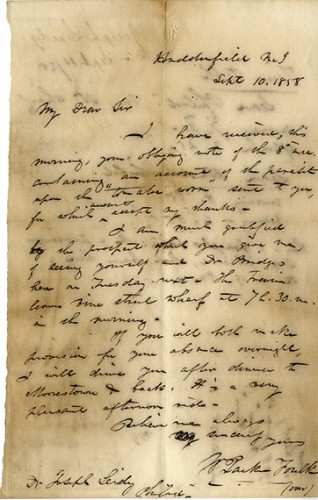 Haddonfield N.J
Sept 10. 1858
My Dear Sir
I have received, this
morning, your obliging note of the 8th inst.
containing an account of the parasite
upon the "tomatoe worm" sent to you,
for which accept my thanks -
I am much gratified
by the prospect which you give me,
of seeing yourself and Dr Bridges
here on Tuesday next - The Train
leaves Vine street wharf at 7 h. 30. m.
in the morning -
If you will both make
provision for your absence overnight,
I will drive you after dinner to
Moorestown & back. It is a very
pleasant afternoon ride -
Believe me always
sincerely yours
W Parker Foulke
Dr Joseph Leidy
Philada
(over)